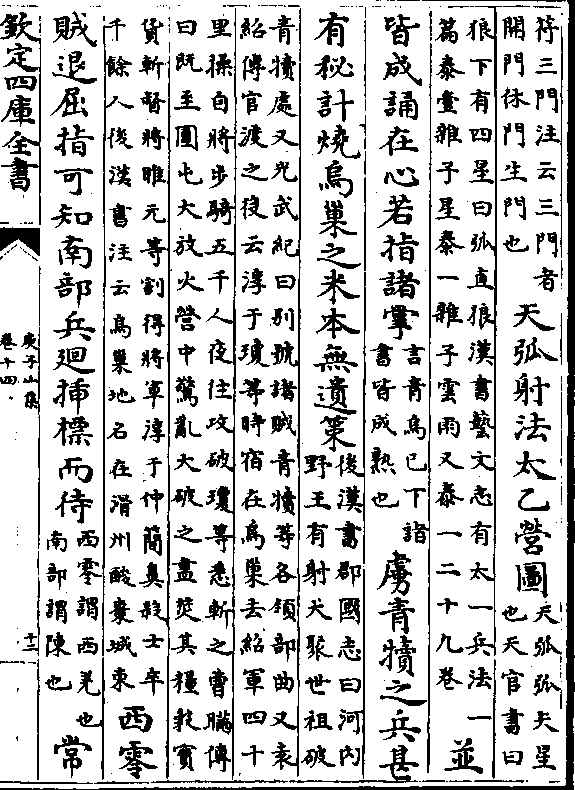 符三門注云三門者
開門休門生門也
天弧射法太乙營圖
天弧弧矢星
也天官書曰
狼下有四星曰弧直狼漢書藝文志有太一兵法一
篇泰壹雜子星泰一雜子雲雨又泰一二十九卷
並
皆成誦在心若指諸掌
言青烏已下諸
書皆成熟也
虜青犢之兵甚
有秘計燒烏巢之米本無遺策
後漢書郡國志曰河內
野王有射犬聚世祖破
青犢處又光武紀曰別號諸賊青犢等各領部曲又袁
紹傳官渡之役云淳于瓊等時宿在烏巢去紹軍四十
里操自將步騎五千人夜往攻破瓊等悉斬之曹瞞傳
曰既至圍屯大放火營中驚亂大破之盡焚其糧穀寶
貨斬督將睢元等割得將軍淳于仲簡鼻殺士卒
千餘人後漢書注云烏巢地名在滑州酸棗城東
西零
賊退屈指可知南部兵廻插標而待
西零謂西羌也
南部謂陳也
常
欽定四庫全書
庾子山集
卷十四
十三